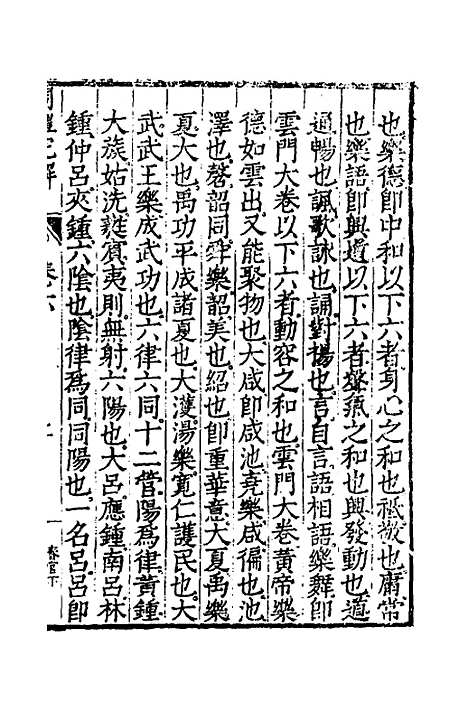 也樂德即中和以下六者身心之和也祗敬也庸常
也樂語即興道以下六者聲氣之和也興發動也道
通暢也諷歌詠也誦對揚也言自言語相語樂舞即
雲門大卷以下六者動容之和也雲門大卷黃帝樂
德如雲出又能聚物也大咸即咸池堯樂咸徧也池
澤也磬韶同舜樂韶美也紹也即重華意大夏禹樂
夏大也禹功平成諸夏也大濩湯樂寬仁護民也大
武武王樂成武功也六律六同十二管陽為律黃鍾
大族姑洗蕤賓夷則無射六陽也大呂應鍾南呂林
鍾仲呂夾鍾六陰也陰律為同同陽也一名呂呂即
周禮完解 卷六 春官下